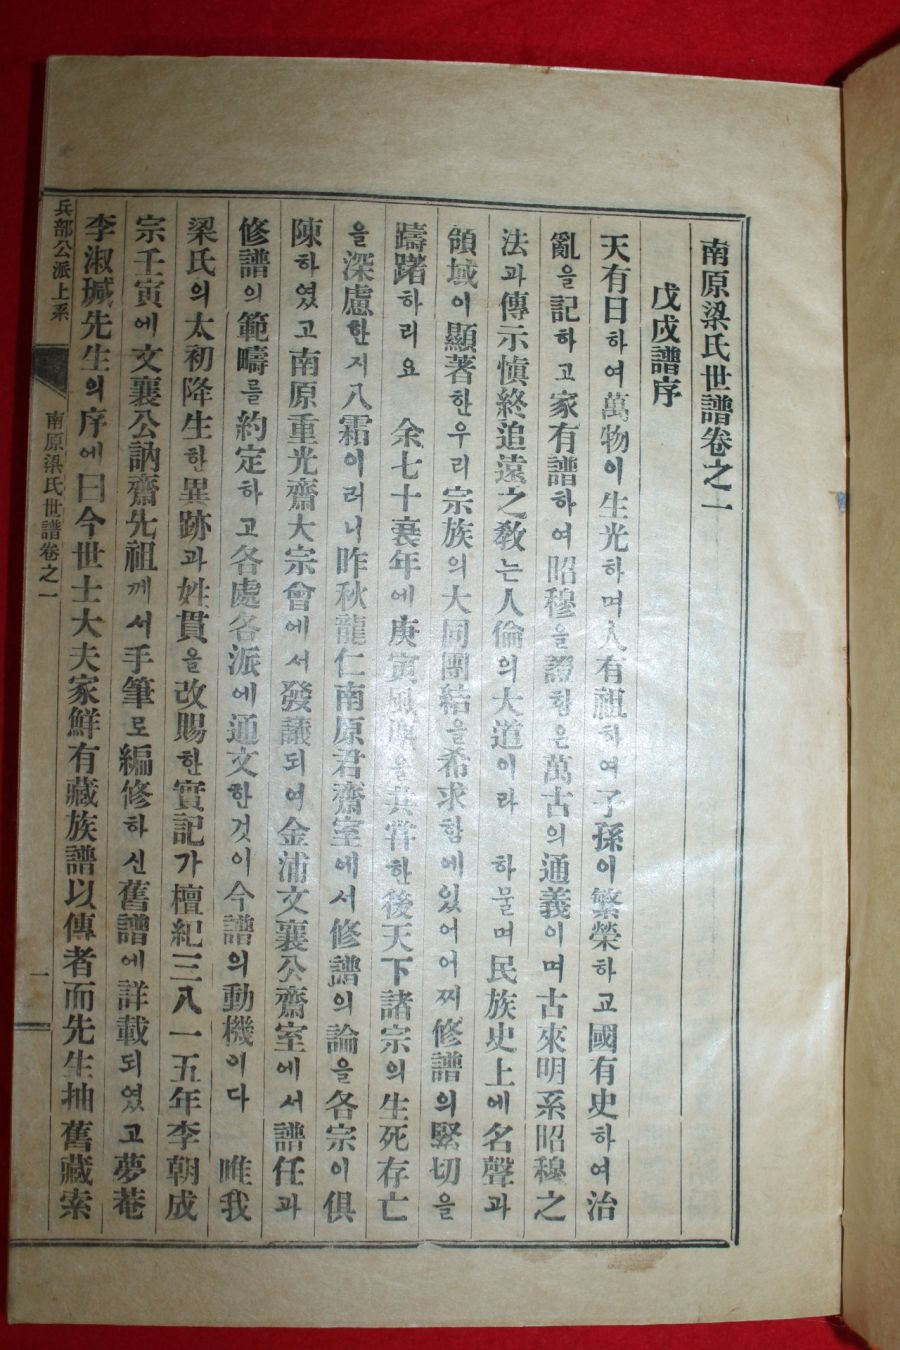 南原梁氏世譜卷之一
戊戌譜序
天有日하여萬物이生光하며人有祖하여子孫이繁榮하고國有史하여治
亂을記하고家有譜하여昭穆을證함은萬古의通義이며古來明系昭穆之
法과傳示愼終追遠之敎는人倫의大道이라 하물며民族史上에名聲과
領域이顯著한우리宗族의大同團結을希求함에있어어찌修譜의緊切을
躊躇하리요 余七十衰年에庚寅風 을 한後天下諸宗의生死存亡
을深慮한지八霜이러니昨秋龍仁南原君齋室에서修譜의論을各宗이俱
陳하였고南原重光齋大宗會에서發議되여金浦文襄公齋室에서譜任과
修譜의範疇를約定하고各處各派에通文한것이今譜의動機이다 唯我
梁氏의太初降生한異跡과姓貫을改賜한實記가檀紀三八一五年李朝成
宗壬寅에文襄公訥齋先祖께서手筆로編修하신舊譜에詳載되였고夢菴
李淑瑊先生의序에曰今世士大夫家鮮有藏族譜以傳者而先生抽舊藏索
兵部公派上系 南原梁氏世譜卷之一 一